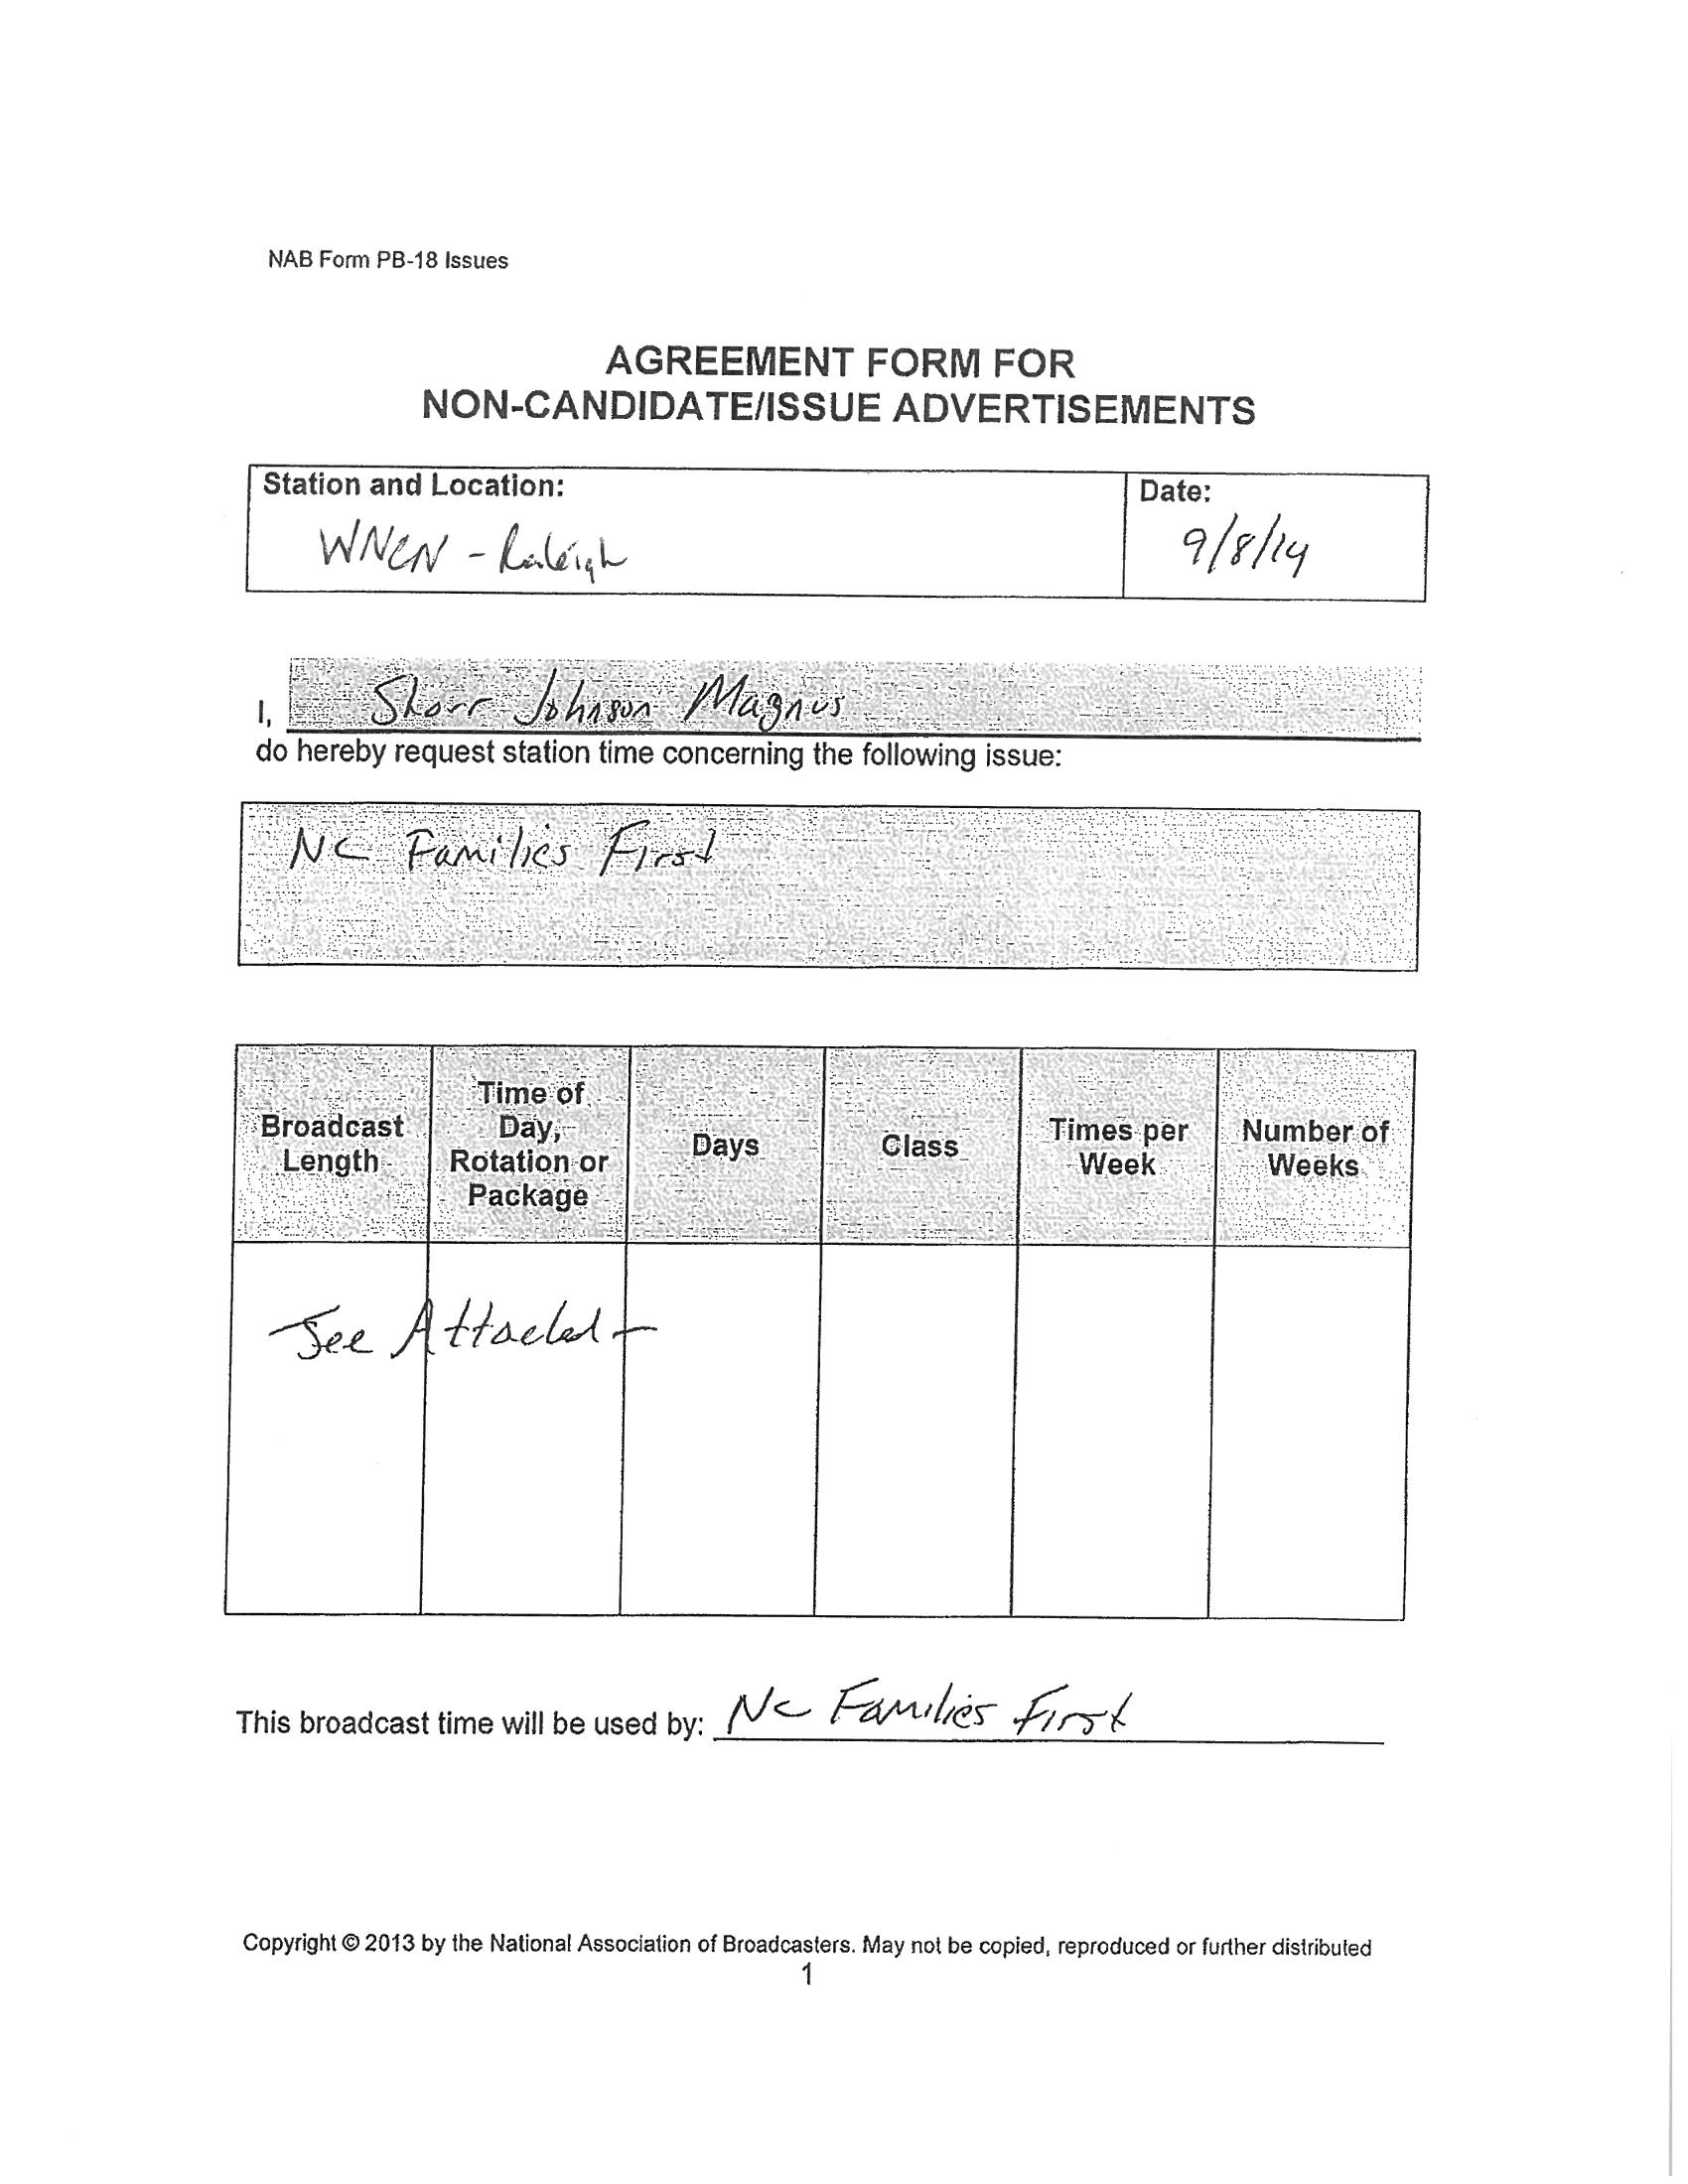 NAB Form PB-18 Issues
AGREEMENT FORM FOR
NON-CANDIDATE/ISSUE ADVERTISEMENTS
Station and Location:
Date:
WNCN - Raleigh
9/8/14
I, Shorr Johnson Magnus
do hereby request station time concerning the following issue:
NC Families First
Broadcast Length
Time of Day, Rotation or Package
Days
Class
Times per Week
Number of Weeks
- See Attached -
This broadcast time will be used by: NC Families First
Copyright © 2013 by the National Association of Broadcasters. May not be copied, reproduced or further distributed
1